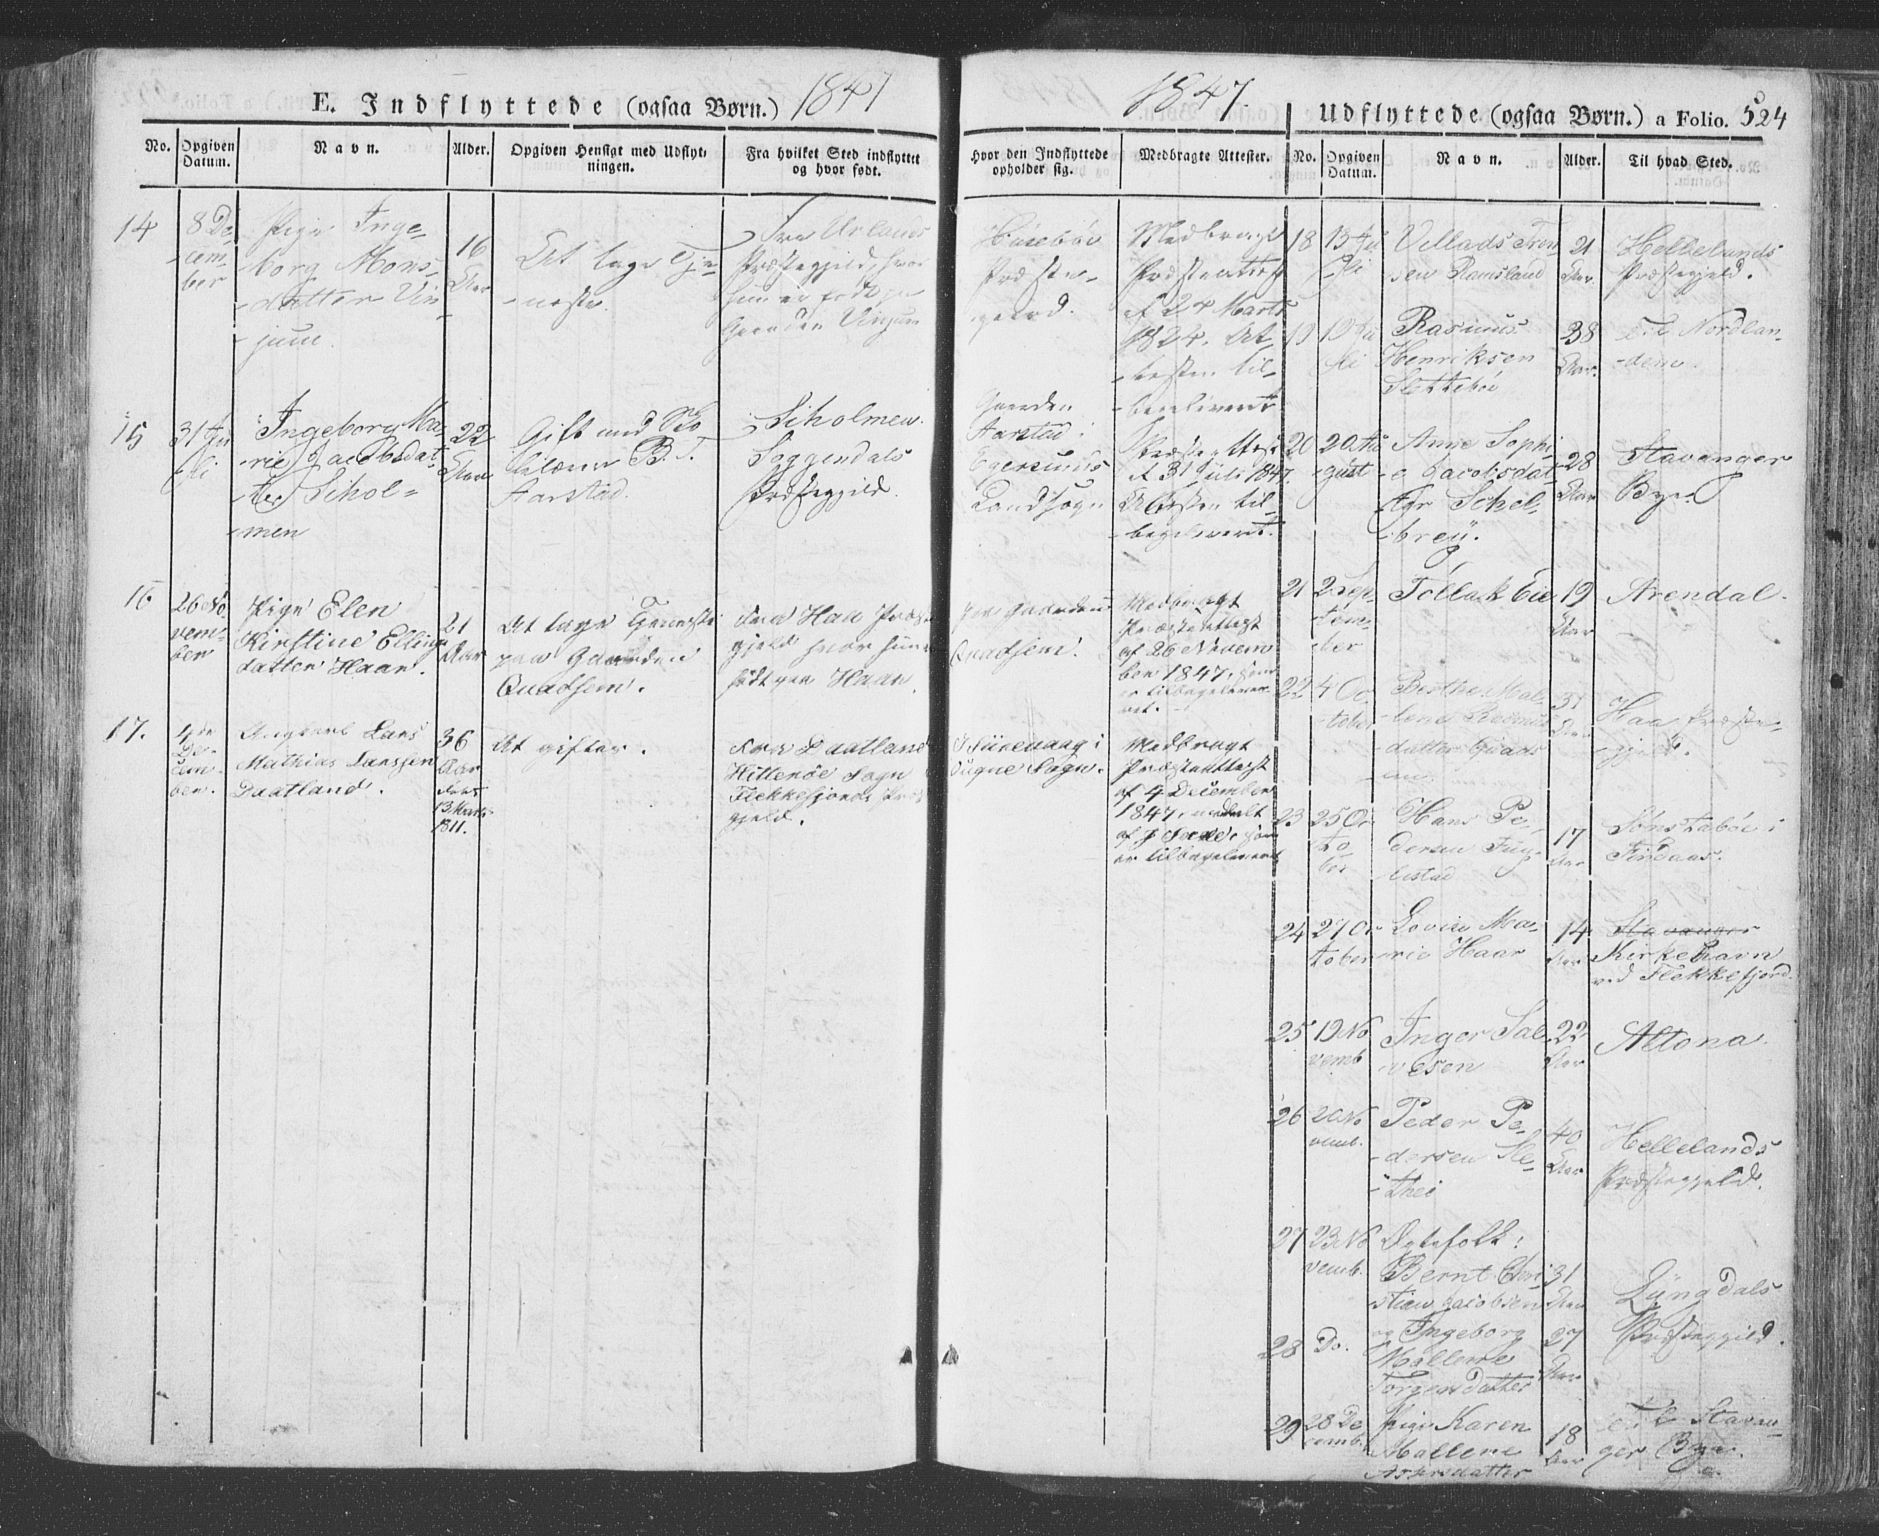 E. Indflyttede (ogsaa Børn.) 1847
No.
Opgiven Datum.
Navn.
Alder.
Opgiven Hensigt med Udflyt-
ningen.
Fra hvilket Sted indflyttet
og hvor født.
14
8 De-
cem-
ber
Pige Inge-
borg Mons-
datter Vin-
jum
16
Aar
At tage Tje-
neste.
Fra Urlands
Præstegjeld, hvor
hun er født paa
Gaarden Vinjum
15
31 Ju-
li
Ingeborg Ma-
rie Jacobsdat-
ter Sihol-
men
22
Aar
Gift med
B. T.
Aarstad.
Siholmen
Soggendals
Præstegjeld.
16
26 No-
vem-
ber
Pige Elen
Kirstine Ellings
datter Haar.
21
Aar
At tage Tjeneste
paa Gaarden
Quadsem.
Fra Haa Præste-
gjeld hvor hun er
født paa Haar.
17.
4de
De-
cem-
ber.
Ungkarl Lars
Mathias Larssen
Daatland.
36
Aar
født
13 Marts
1811.
At gifter.
Fra Daatland
Hitterøe Sogn
Flekkefjords Præs
gjeld.
1847.
Udflyttede (ogsaa Børn.) a Folio. 524
Hvor den Indflyttede
opholder sig.
Medbragte Attester.
No.
Opgiven
Datum.
Navn.
Alder.
Til hvad Sted.
Præste-
gaard.
Medbragt
Præsteattest
af 24 Marts
1824. At-
testen til-
bageleveret
Gaarden
Aarstad i
Egersunds
Landsogn
Præsteattest
af 31 Juli 1847.
Attesten til-
bageleveret.
paa Gaarden
Quadsem.
Medbragt
Præsteattest
af 26 Novem
ber 1847, som
er tilbageleve-
ret.
i
Sogne Sogn.
Medbragt
Præsteattest
af 4 December
1847, meddelt
af som
er tilbageleveret
18
13 Ju
li
Vellads Tron
sen Ramsland
21
Aar
Hellelands
Præstegjeld.
19
19 Ju
li
Rasmus
Henriksen
Slettebøe
38
Aar.
til Nordlan-
dene.
20
20 Au
gust
Anne Sophi-
e Jacobsdat-
ter Schel-
breij.
28
Aar
Stavanger
Bye
21
2 Sep-
tem-
ber
Tollak Eie
19
Aar
Arendal.
22
4 Oc
tober
Berthe Male-
lene Rasmus
datter
31
Aar
Haa Præste-
gjeld.
23
25 Oc
to-
ber
Hans Pe-
dersen Fug-
lestad
17
Aar
Sømstabøe i
Findaas.
24
27 Oc
tober
Lovise Ma-
rie Haar
14
Aar
Stavanger
Kirkehavn
ved Flekkefjord.
25
19 No
vemb
Inger Sal-
vesen
22
Aar
Altona.
26
20 No
vemb.
Peder Pe-
dersen Sle-
thei
40
Aar
Hellelands
Præstegjeld.
27
23 No
vemb.
Ægtefolk:
Bernt Chri-
stian Jacobsen
31
Aar
Lyngdals
Præstegjeld.
28
Do.
og Ingeborg
Mallene
Torgersdatter
27
Aar
29
28 De
cemb.
Pige Karen
Mallene
Aspersdatter
18
Aar
til Stavan-
ger Bye.